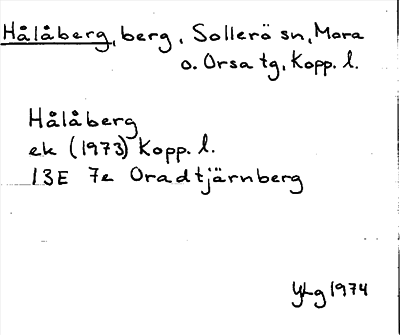 Hålåberg, berg, Sollerö sn, Mora
o. Orsa tg, Kopp. l.
Hålåberg
ek (1973) Kopp. l.
13E 7e Oradtjärnberg
YLg 1974